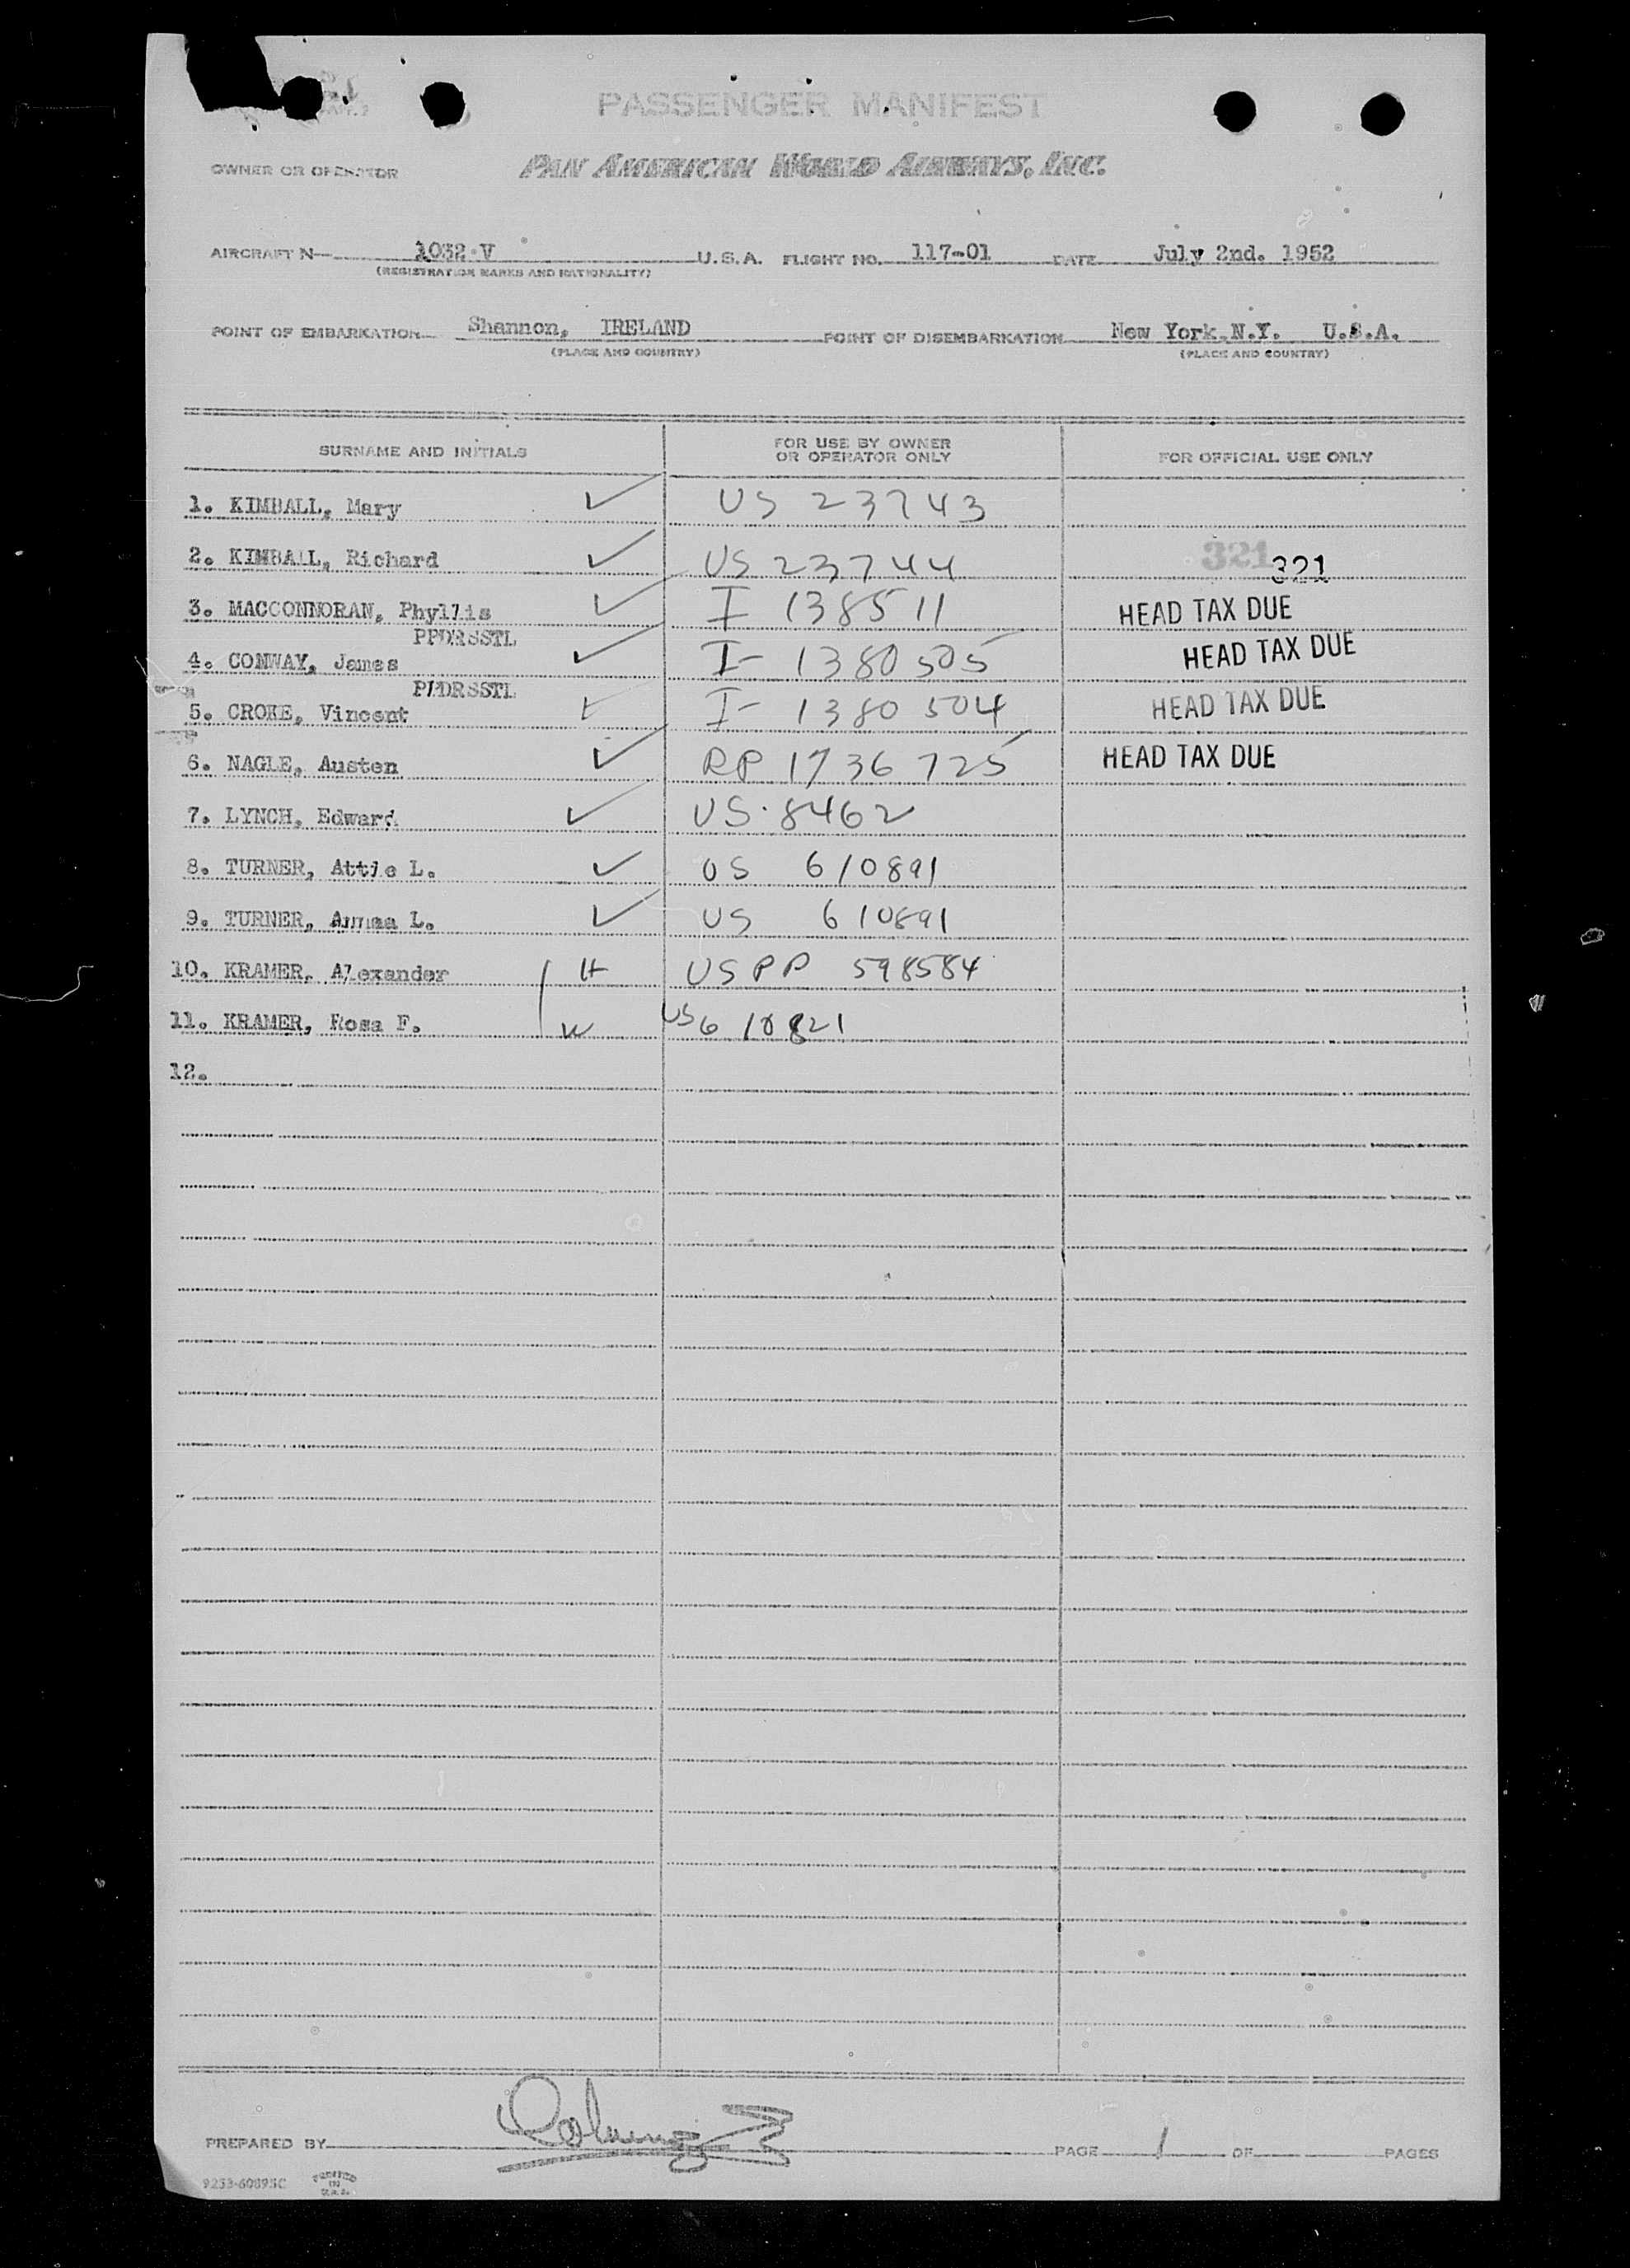 PASSENGER MANIFEST
OWNER OR OPERATOR PAN AMERICAN WORLD AIRWAYS, INC.
AIRCRAFT N— 1032 V U.S.A. FLIGHT NO. 117-01 DATE July 2nd. 1952
(REGISTRATION MARKS AND NATIONALITY)
POINT OF EMBARKATION Shannon, IRELAND POINT OF DISEMBARKATION New York,N.Y. U.S.A.
(PLACE AND COUNTRY) (PLACE AND COUNTRY)
SURNAME AND INITIALS FOR USE BY OWNER OR OPERATOR ONLY FOR OFFICIAL USE ONLY
1. KIMBALL, Mary ✓ US 23743
2. KIMBALL, Richard ✓ US 23744 321 321
3. MACCONNORAN, Phyllis ✓ I 138511 HEAD TAX DUE
PPDRSSTL
4. CONWAY, James ✓ I- 1380505 HEAD TAX DUE
PPDRSSTL
5. CROKE, Vincent ✓ I- 1380504 HEAD TAX DUE
6. NAGLE, Austen ✓ RP 1736725 HEAD TAX DUE
7. LYNCH, Edward ✓ US. 8462
8. TURNER, Attie L. ✓ US 610891
9. TURNER, Annaa L. ✓ US 610891
10. KRAMER, Alexander H USPP 598584
11. KRAMER, Rosa F. W US 610821
12.
PREPARED BY PAGE 1 OF PAGES
9233-60895C PRINTED IN U.S.A.